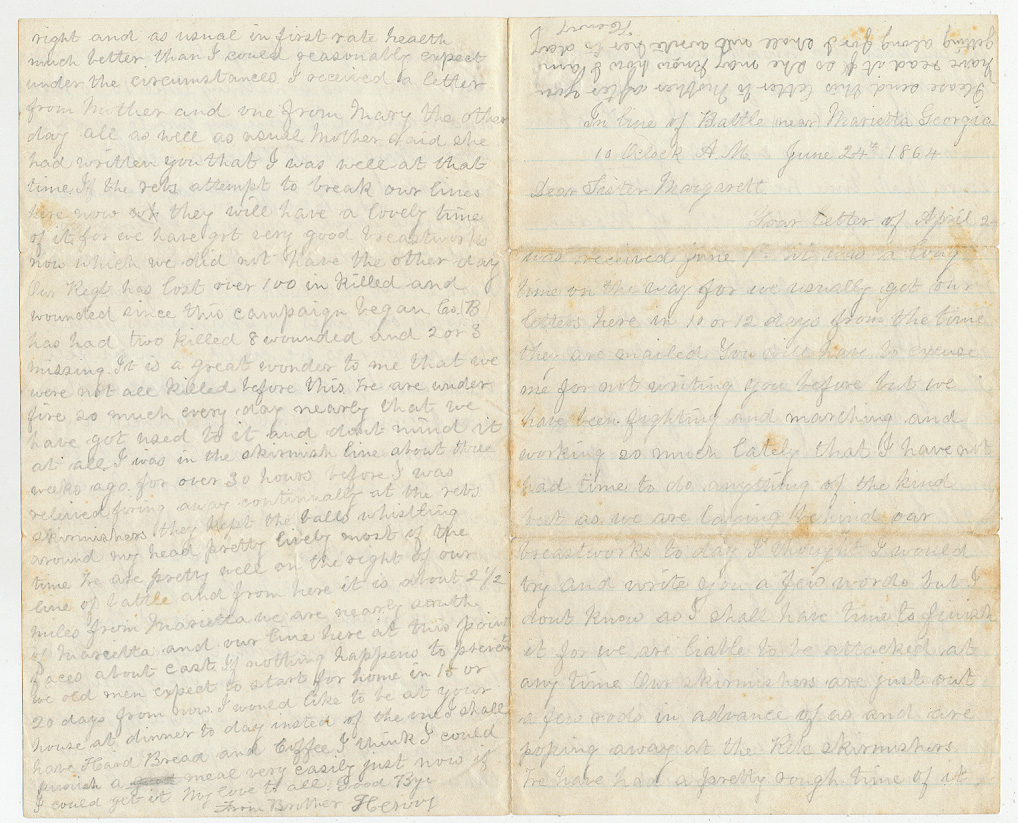 In line of Battle (near) Marietta Georgia
10 Oclock A.M. June 24th 1864
Dear Sister Margarett
Your letter of April 2
was received june 1st it was a long
time on the way for we usually get our
letters here in 10 or 12 days from the time
they are mailed You will have to excuse
me for not writing you before but we
have been fighting and marching and
working so much lately that I have not
had time to do anything of the kind
but as we are laying behind our
breastworks to day I thought I would
try and write you a few words but I
dont know as I shall have time to finish
it for we are liable to be attacked at
any time Our skirmishers are just out
a few rods in advance of us and are
poping away at the Rebs skirmishers
We have had a pretty rough time of it
right and as usual in first rate health
much better than I could reasonably expect
under the circumstances I received a letter
from Mother and one from Mary the other
day all as well as usual Mother said she
had written you that I was well at that
time. If the rebs attempt to break our lines
here now they will have a lovely time
of it, for we have got very good breastworks
now which we did not have the other day
Our Regt has lost over 100 in killed and
wounded since this campaign began Co. B
has had two killed 8 wounded and 2 or 3
missing. It is a great wonder to me that we
were not all killed before this. We are under
fire so much every day nearly that we
have got used to it and dont mind it
at all. I was in the skirmish line about three
weeks ago for over 30 hours before I was
releived firing away continually at the rebs
skirmishers they kept the balls whistling
around my head pretty lively most of the
time We are pretty well on the right of our
line of battle and from here it is about 2 1/2
miles from Marietta we are nearly south
of Marietta and our line here at this point
faces about east. If nothing happens to prevent
we old men expect to start for home in 18 or
20 days from now. I would like to be at your
house at dinner to day insted of the one I shall
have Hard Bread and Coffee I think I could
punish a meal very easily just now if
I could get it My love to all. Good Bye
From Brother Henry
Please send this letter to Mother after you
have read it so she may know how I am
getting along for I shall not write her to day
Henry